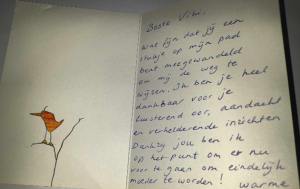 Beste Vibi,
Wat fijn dat jij een
stukje op mijn pad
bent meegewandeld
om mij de weg te
wijzen. Ik ben je heel
dankbaar voor je
luisterend oor, aandacht
en verhelderende inzichten
Dankzij jou ben ik
op het punt om er nu
voor te gaan om eindelijk
moeder te worden! warme